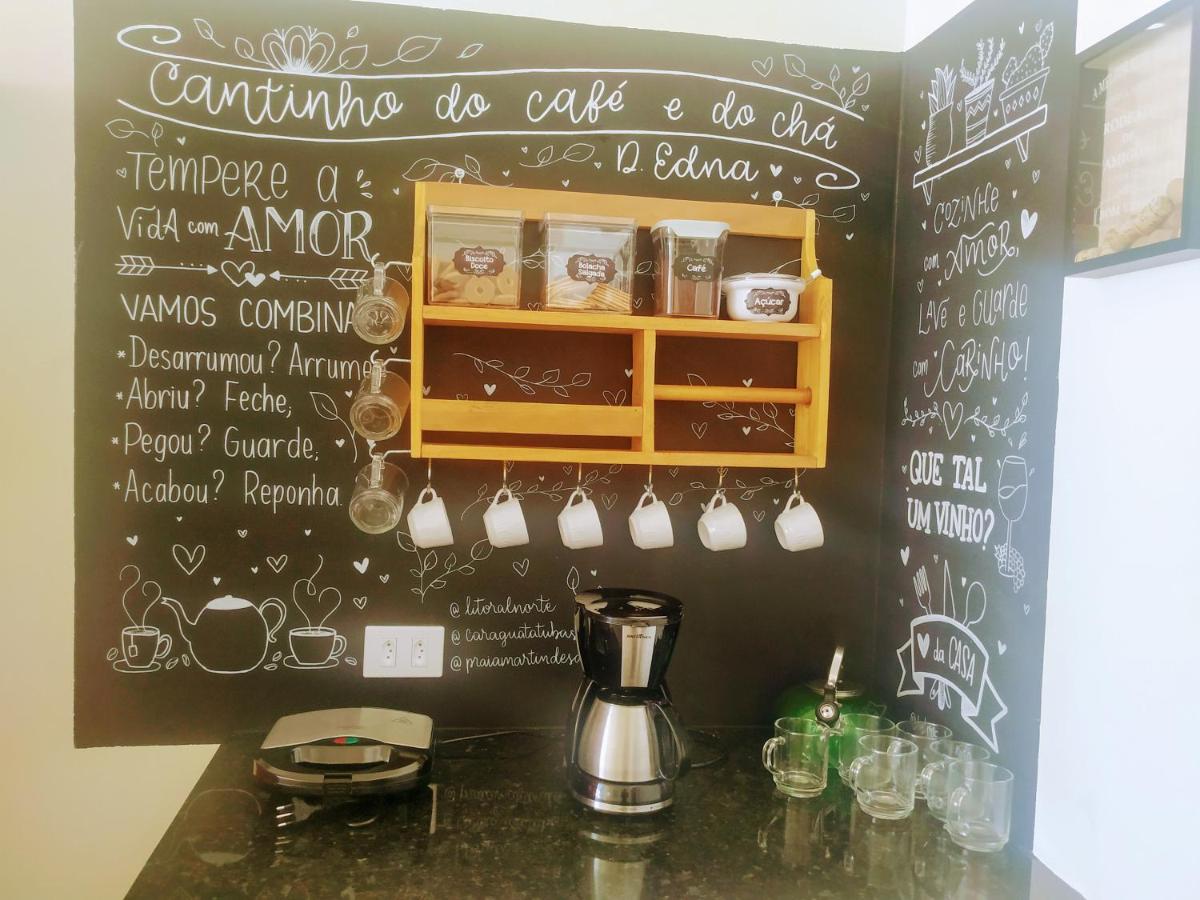 Cantinho do café e do chá
D. Edna
TEMPERE a
VIDA com AMOR
VAMOS COMBINA
*Desarrumou? Arrume
*Abriu? Feche,
*Pegou? Guarde,
*Acabou? Reponha.
Biscoito
Doce
Bolacha
Salgada
Café
Açúcar
@litoralnorte
@caraguatatubas
@praiamartindesa
COZINHE
com AMOR,
LAVE e GUARDE
com CARINHO!
QUE TAL
UM VINHO?
da CASA